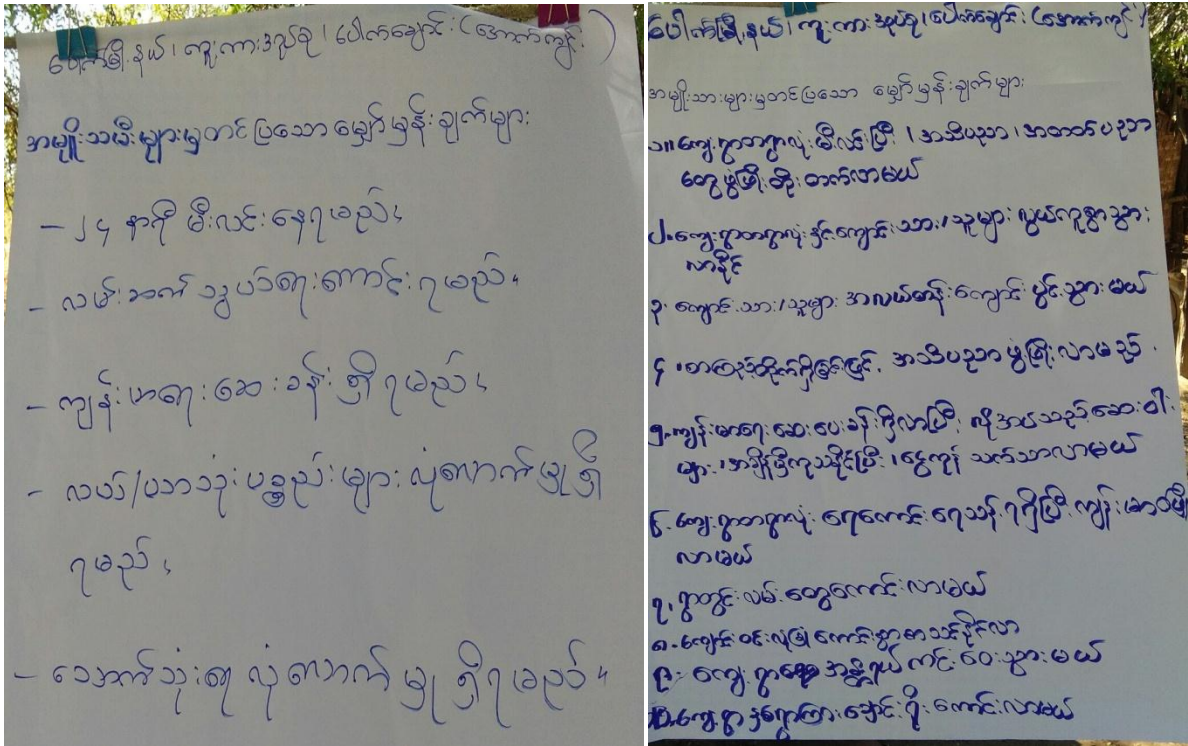 ပေါက်မြို့နယ်၊ ကူးကားအုပ်စု၊ ပေါက်ချောင်း (အောက်ကျင်း)
အမျိုးသမီးများမှတင်ပြသော မျှော်မှန်းချက်များ
- ၂၄ နာရီ မီးလင်းနေရမည်၊
- လမ်းဆက်သွယ်ရေးကောင်းရမည်။
- ကျန်းမာရေးဆေးခန်းရှိရမည်၊
- လယ်/ယာသုံးပစ္စည်းများ လုံလောက်မှုရှိ
ရမည်၊
- သောက်သုံးရေ လုံလောက်မှုရှိရမည်။
ပေါက်မြို့နယ်၊ ကူးကားအုပ်စု၊ ပေါက်ချောင်း (အောက်ကျင်း)
အမျိုးသားများမှတင်ပြသော မျှော်မှန်းချက်များ
၁။ ကျေးရွာတရွာလုံးမီးလင်းပြီး၊ အသိပညာ၊ အတတ်ပညာ
တွေဖွံ့ဖြိုးတိုးတက်လာမယ်
၂. ကျေးရွာတရွာလုံးနှင့်ကျောင်းသား/သူများ လွယ်ကူစွာသွား
လာနိုင်
၃. ကျောင်းသား/သူများ အလယ်တန်းကျောင်း ဖွင့်သွားမယ်
၄. စာကြည့်တိုက်ရှိခြင်းဖြင့် အသိပညာ ဖွံ့ဖြိုးလာမည်.
၅. ကျန်းမာရေးဆေးပေးခန်းရှိလာပြီး လိုအပ်သည့်ဆေးဝါး
များ၊ အချိန်မှီကုသနိုင်ပြီး၊ ငွေကုန် သက်သာလာမယ်
၆. ကျေးရွာတရွာလုံး ရေကောင်းရေသန့်ရရှိပြီး ကျန်းမာ
လာမယ်
၇. ရွာတွင်းလမ်းတွေကောင်းလာမယ်
၈. ကျောင်းဝင်းလုံခြုံကောင်းစွာစာသင်နိုင်လာ
၉. ကျေးရွာ အန္တရာယ် ကင်းဝေးသွားမယ်
၁၀. ကျေးရွာ ချောင်းရိုးကောင်းလာမယ်